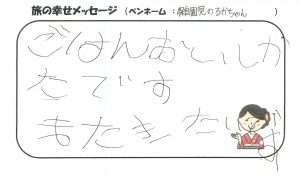 旅の幸せメッセージ（ペンネーム：保育園児のるかちゃん）
ごはんおといしか
たです
またきたいです